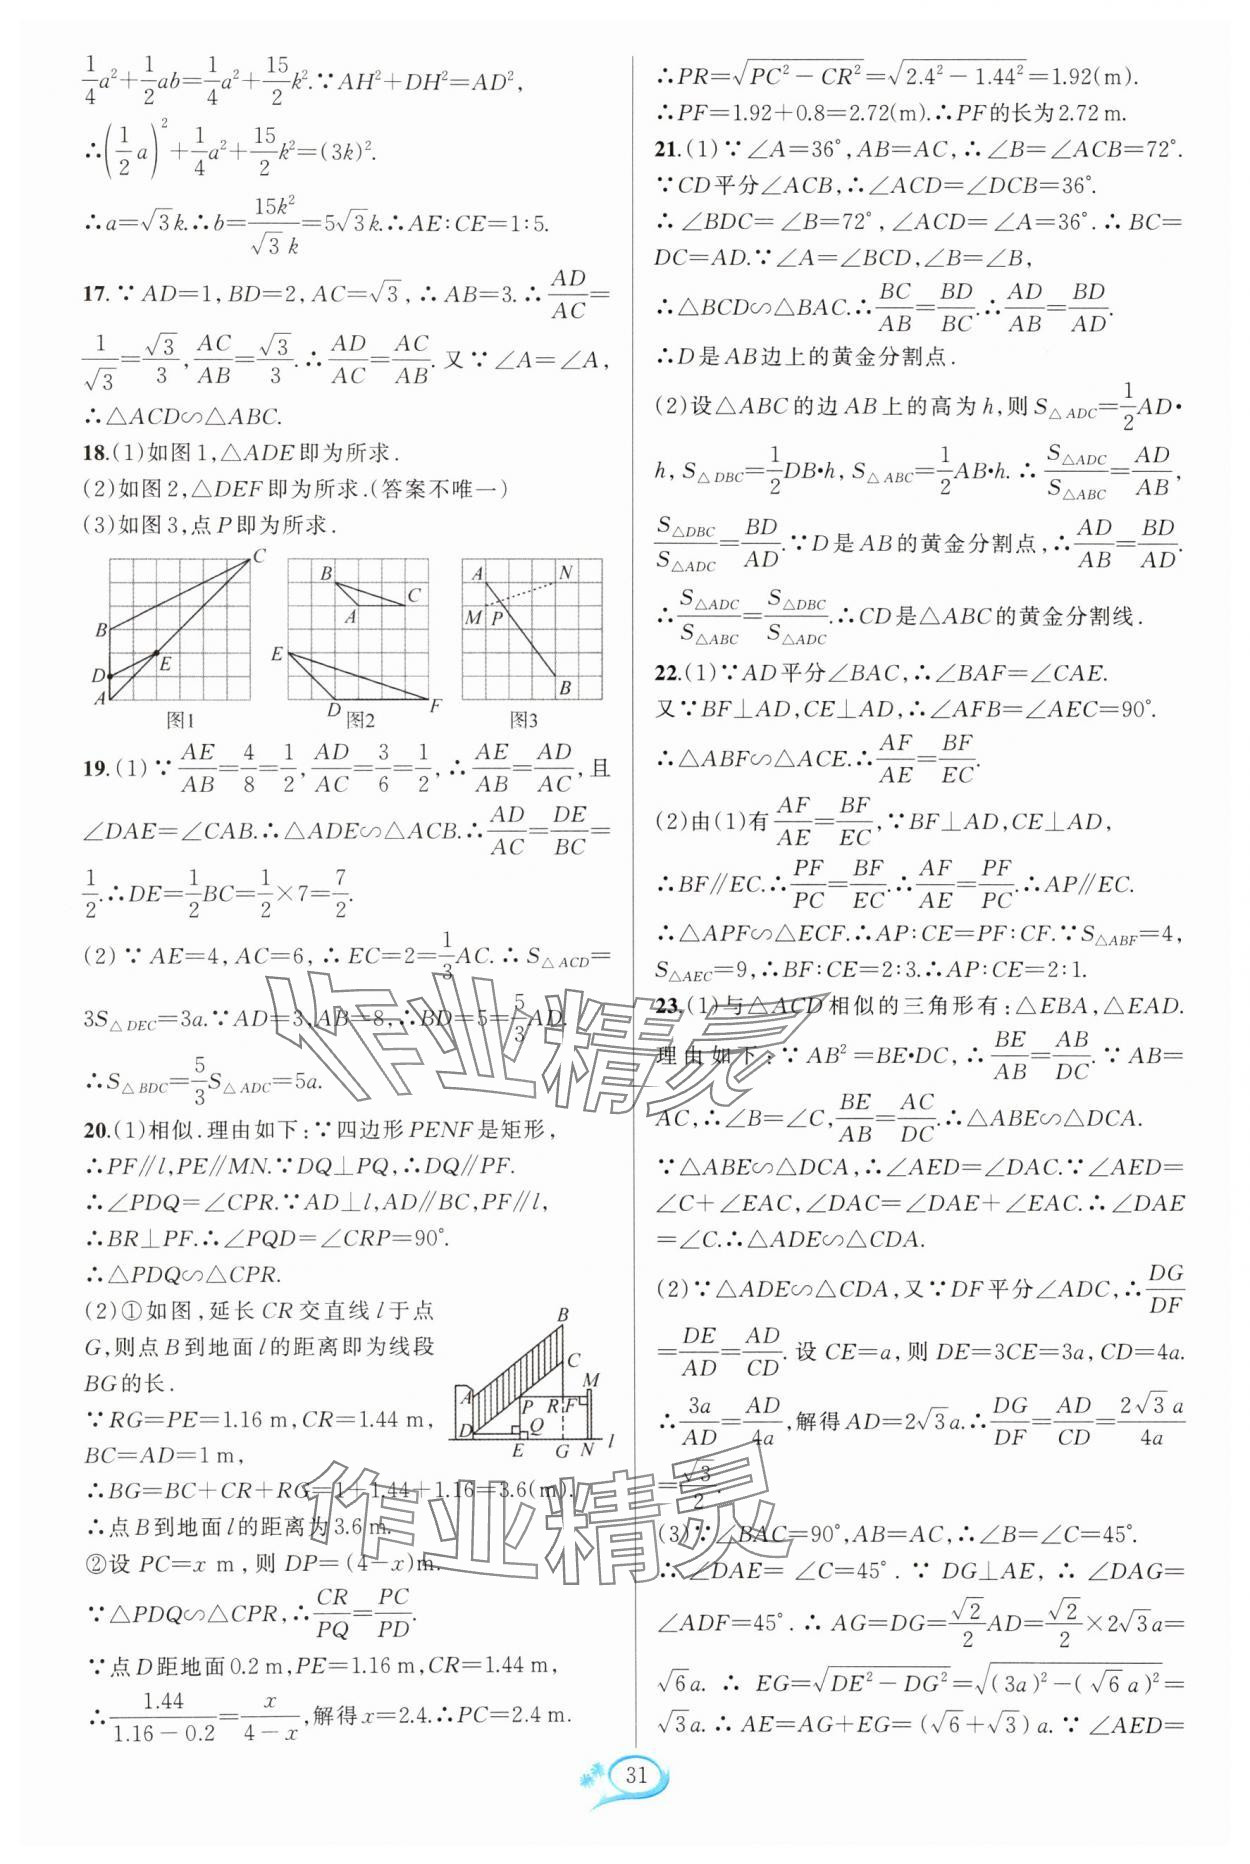 1/4a²+1/2ab=1/4a²+15/2k².∵AH²+DH²=AD²,
∴(1/2a)²+1/4a²+15/2k²=(3k)².
∴a=√3k.∴b=15k²/√3k=5√3k.∴AE:CE=1:5.
17.∵AD=1,BD=2,AC=√3,∴AB=3.∴AD/AC=
1/√3=√3/3,AC/AB=√3/3.∴AD/AC=AC/AB.又∵∠A=∠A,
∴△ACD∽△ABC.
18.(1)如图1,△ADE即为所求.
(2)如图2,△DEF即为所求.(答案不唯一)
(3)如图3,点P即为所求.
C
B
D
E
A
图1
B
C
A
E
D
F
图2
A
N
M
P
B
图3
19.(1)∵AE/AB=4/8=1/2,AD/AC=3/6=1/2,∴AE/AB=AD/AC,且
∠DAE=∠CAB.∴△ADE∽△ACB.∴AD/AC=DE/BC=
1/2.∴DE=1/2BC=1/2×7=7/2.
(2)∵AE=4,AC=6,∴EC=2=1/3AC.∴S△ACD=
3S△DEC=3a.∵AD=3,AB=8,∴BD=5=5/3AD.
∴S△BDC=5/3S△ADC=5a.
20.(1)相似.理由如下:∵四边形PENF是矩形,
∴PF∥l,PE∥MN.∵DQ⊥PQ,∴DQ∥PF.
∴∠PDQ=∠CPR.∵AD⊥l,AD∥BC,PF∥l,
∴BR⊥PF.∴∠PQD=∠CRP=90°.
∴△PDQ∽△CPR.
(2)①如图,延长CR交直线l于点
G,则点B到地面l的距离即为线段
BG的长.
∵RG=PE=1.16 m,CR=1.44 m,
BC=AD=1 m,
B
C
M
A
P
R
F
D
Q
E
G
N
l
∴BG=BC+CR+RG=1+1.44+1.16=3.6(m).
∴点B到地面l的距离为3.6 m.
②设PC=x m,则DP=(4-x)m.
∵△PDQ∽△CPR,∴CR/PQ=PC/PD.
∵点D距地面0.2 m,PE=1.16 m,CR=1.44 m,
∴1.44/1.16-0.2=x/4-x,解得x=2.4.∴PC=2.4 m.
∴PR=√PC²-CR²=√2.4²-1.44²=1.92(m).
∴PF=1.92+0.8=2.72(m).∴PF的长为2.72 m.
21.(1)∵∠A=36°,AB=AC,∴∠B=∠ACB=72°.
∵CD平分∠ACB,∴∠ACD=∠DCB=36°.
∴∠BDC=∠B=72°,∠ACD=∠A=36°.∴BC=
DC=AD.∵∠A=∠BCD,∠B=∠B,
∴△BCD∽△BAC.∴BC/AB=BD/BC.∴AD/AB=BD/AD.
∴D是AB边上的黄金分割点.
(2)设△ABC的边AB上的高为h,则S△ADC=1/2AD•
h,S△DBC=1/2DB•h,S△ABC=1/2AB•h.∴S△ADC/S△ABC=AD/AB,
S△DBC/S△ADC=BD/AD.∵D是AB的黄金分割点,∴AD/AB=BD/AD.
∴S△ADC/S△ABC=S△DBC/S△ADC.∴CD是△ABC的黄金分割线.
22.(1)∵AD平分∠BAC,∴∠BAF=∠CAE.
又∵BF⊥AD,CE⊥AD,∴∠AFB=∠AEC=90°.
∴△ABF∽△ACE.∴AF/AE=BF/EC.
(2)由(1)有AF/AE=BF/EC,∵BF⊥AD,CE⊥AD,
∴BF∥EC.∴PF/PC=BF/EC.∴AF/AE=PF/PC.∴AP∥EC.
∴△APF∽△ECF.∴AP:CE=PF:CF.∵S△ABF=4,
S△AEC=9,∴BF:CE=2:3.∴AP:CE=2:1.
23.(1)与△ACD相似的三角形有:△EBA,△EAD.
理由如下:∵AB²=BE•DC,∴BE/AB=AB/DC.∵AB=
AC,∴∠B=∠C,BE/AB=AC/DC.∴△ABE∽△DCA.
∵△ABE∽△DCA,∴∠AED=∠DAC.∵∠AED=
∠C+∠EAC,∠DAC=∠DAE+∠EAC.∴∠DAE
=∠C.∴△ADE∽△CDA.
(2)∵△ADE∽△CDA,又∵DF平分∠ADC,∴DG/DF
=DE/AD=AD/CD.设CE=a,则DE=3CE=3a,CD=4a.
∴3a/AD=AD/4a,解得AD=2√3a.∴DG/DF=AD/CD=2√3a/4a
=√3/2.
(3)∵∠BAC=90°,AB=AC,∴∠B=∠C=45°.
∴∠DAE=∠C=45°.∵DG⊥AE,∴∠DAG=
∠ADF=45°.∴AG=DG=√2/2AD=√2/2×2√3a=
√6a.∴EG=√DE²-DG²=√(3a)²-(√6a)²=
√3a.∴AE=AG+EG=(√6+√3)a.∵∠AED=
31
作业精灵
作业精灵